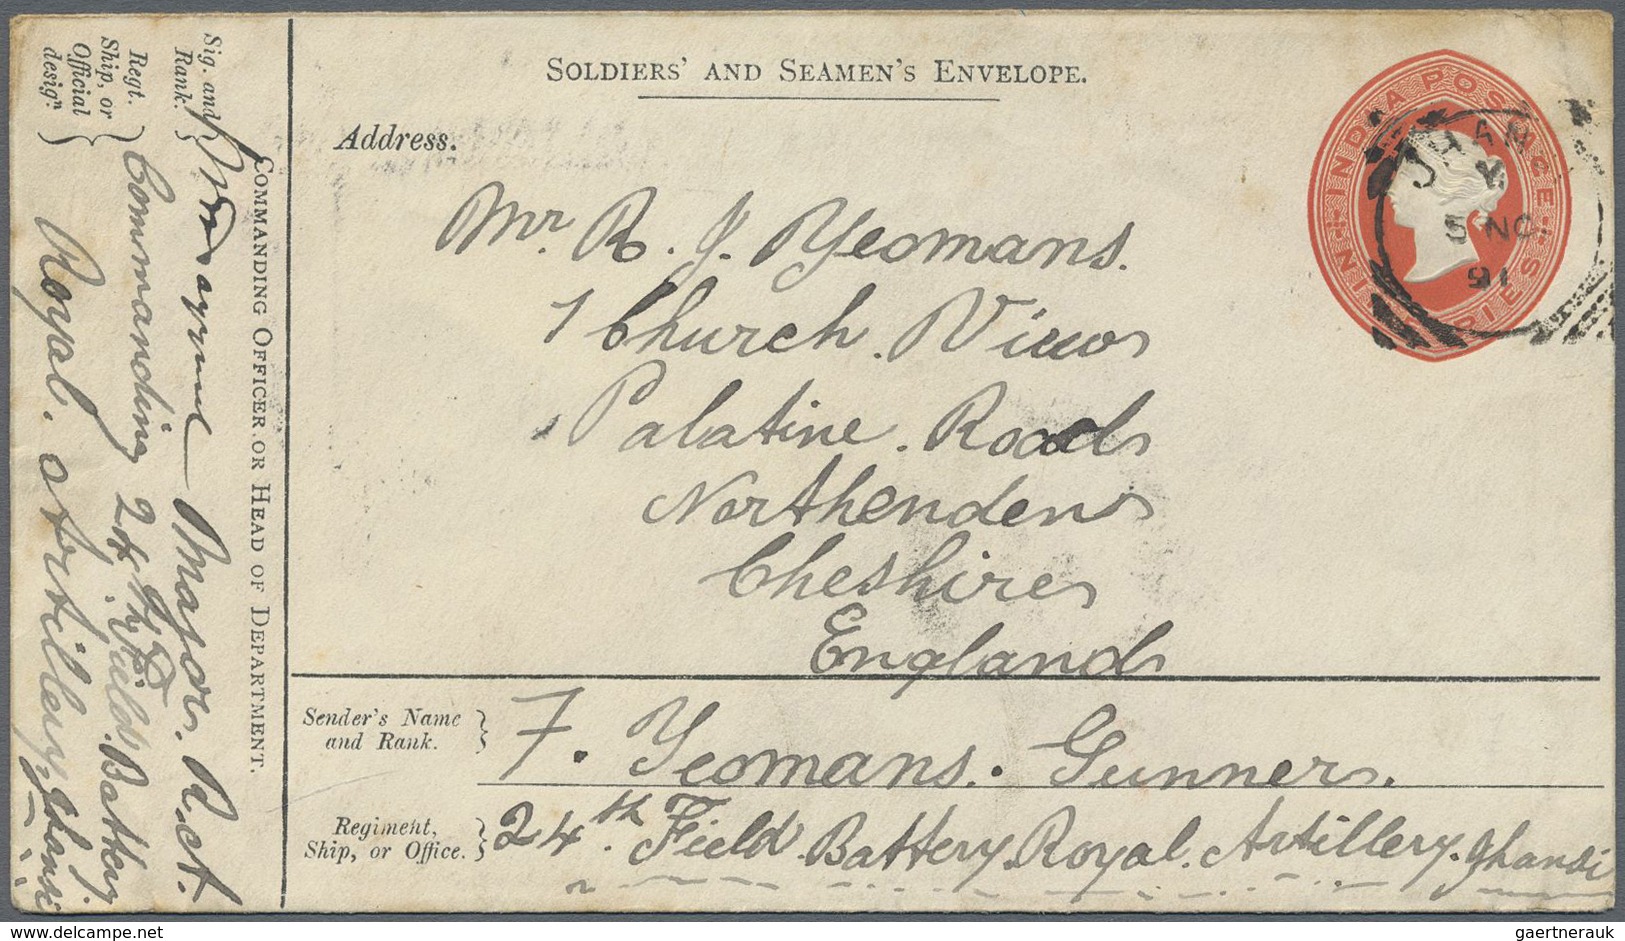 SOLDIERS' AND SEAMEN'S ENVELOPE.
Address.
Mr. R. J. Yeomans.
1 Church. View
Palatine. Road
Northenden
Cheshire
England
Sender's Name
and Rank.
F. Yeomans. Gunner.
Regiment,
Ship, or Office.
24th. Field. Battery. Royal. Artillery. Jhansi
INDIA POSTAGE
NINE PIES
JHANSI
5 NO
91
COMMANDING OFFICER OR HEAD OF DEPARTMENT.
Sig. and
Rank.
Major. R.A.
Regt.
Ship, or
Official
desigⁿ.
Commanding 24th. Field. Battery.
Royal. Artillery, Jhansi
gaertnerauk